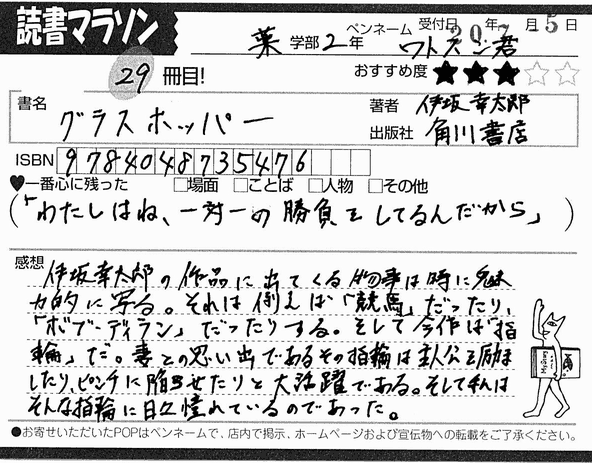 読書マラソン
薬 学部 2年 ペンネーム ワトスン君
受付日 20 年 7 月 5 日
29 冊目!
おすすめ度 ★★★☆☆
書名 グラスホッパー
著者 伊坂幸太郎
出版社 角川書店
ISBN 9784048735476
♥一番心に残った □場面 □ことば □人物 □その他
(「わたしはね、一対一の勝負をしてるんだから」)
感想
伊坂幸太郎の作品に出てくる物事は時に魅
力的に写る。それは例えば「競馬」だったり、
「ボブ・ディラン」だったりする。そして今作は「指
輪」だ。妻との思い出であるその指輪は主人公を励ま
したり、ピンチに陥らせたりと大活躍である。そして私は
そんな指輪に日々憧れているのであった。
●お寄せいただいたPOPはペンネームで、店内で掲示、ホームページおよび宣伝物への転載をご了承ください。